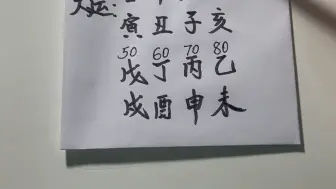 大运:
寅丑子亥
50 60 70 80
戊丁丙乙
戌酉申未